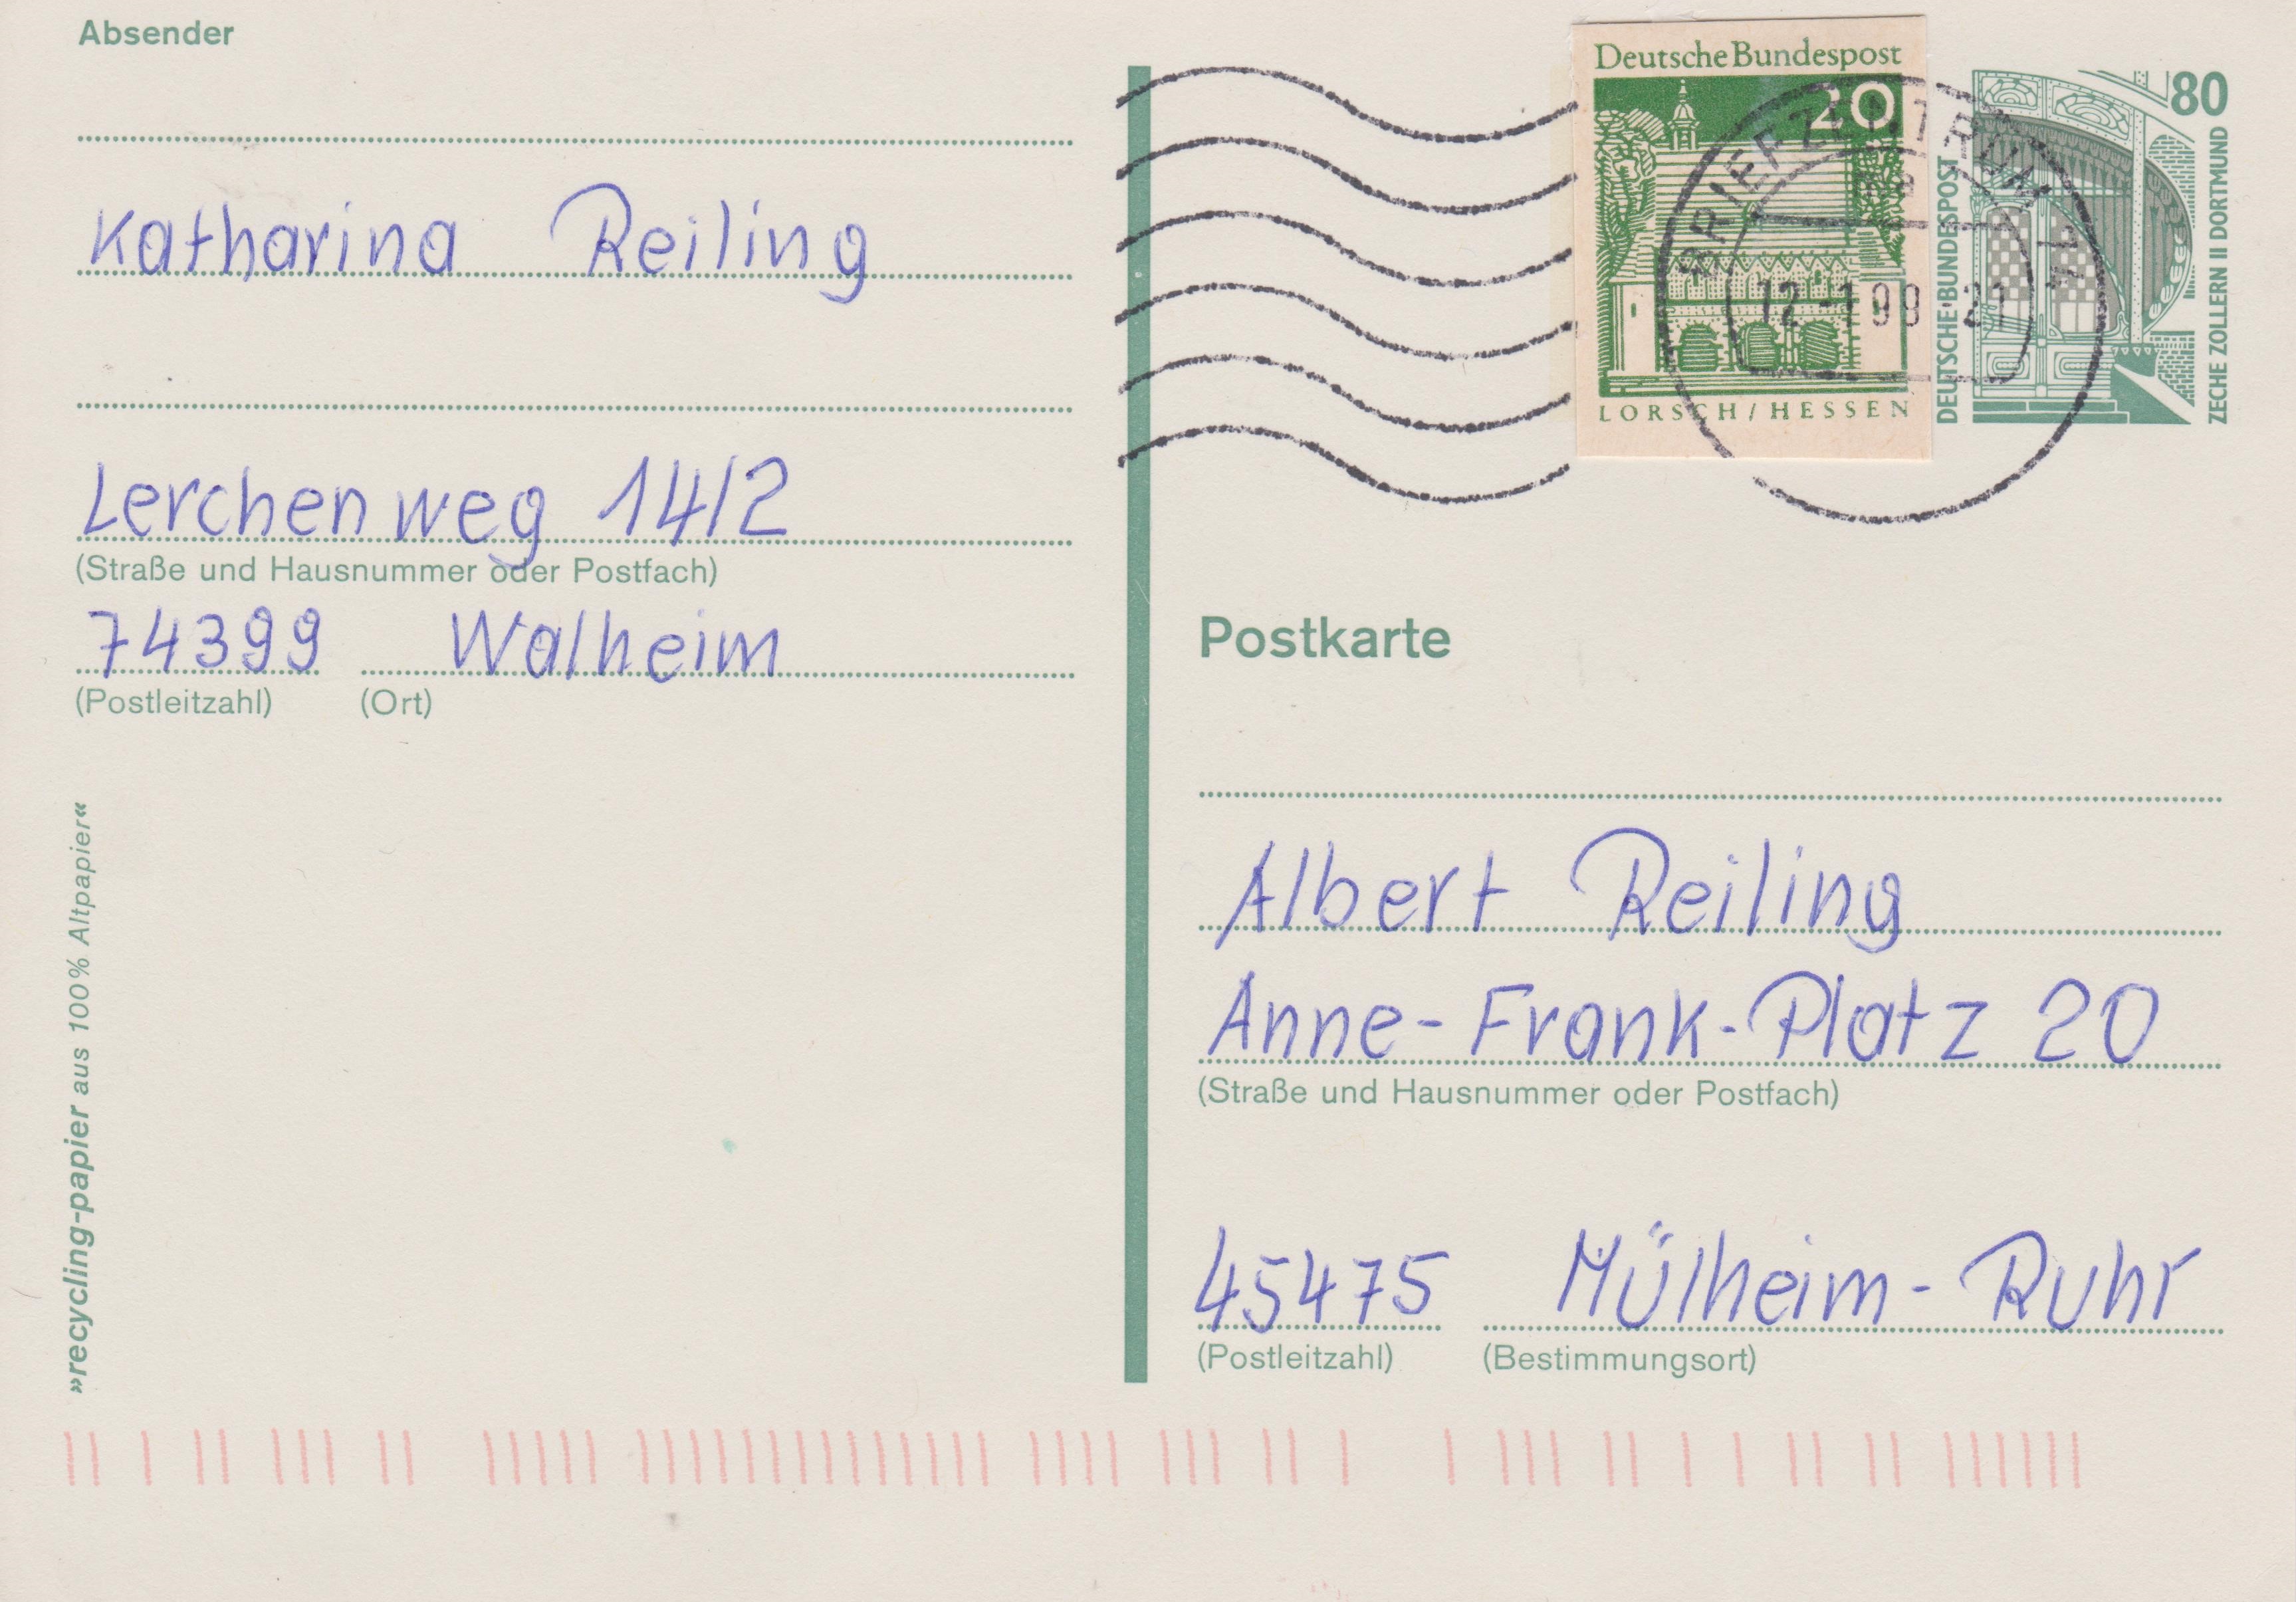 Absender
Katharina Reiling
Lerchenweg 14/2
(Straße und Hausnummer oder Postfach)
74399 Walheim
(Postleitzahl) (Ort)
»recycling-papier aus 100% Altpapier«
Deutsche Bundespost
20
LORSCH / HESSEN
BRIEFZENTRUM 74
12.-1.98-21
80
DEUTSCHE·BUNDESPOST
ZECHE ZOLLERN II DORTMUND
Postkarte
Albert Reiling
Anne-Frank-Platz 20
(Straße und Hausnummer oder Postfach)
45475 Mülheim-Ruhr
(Postleitzahl) (Bestimmungsort)